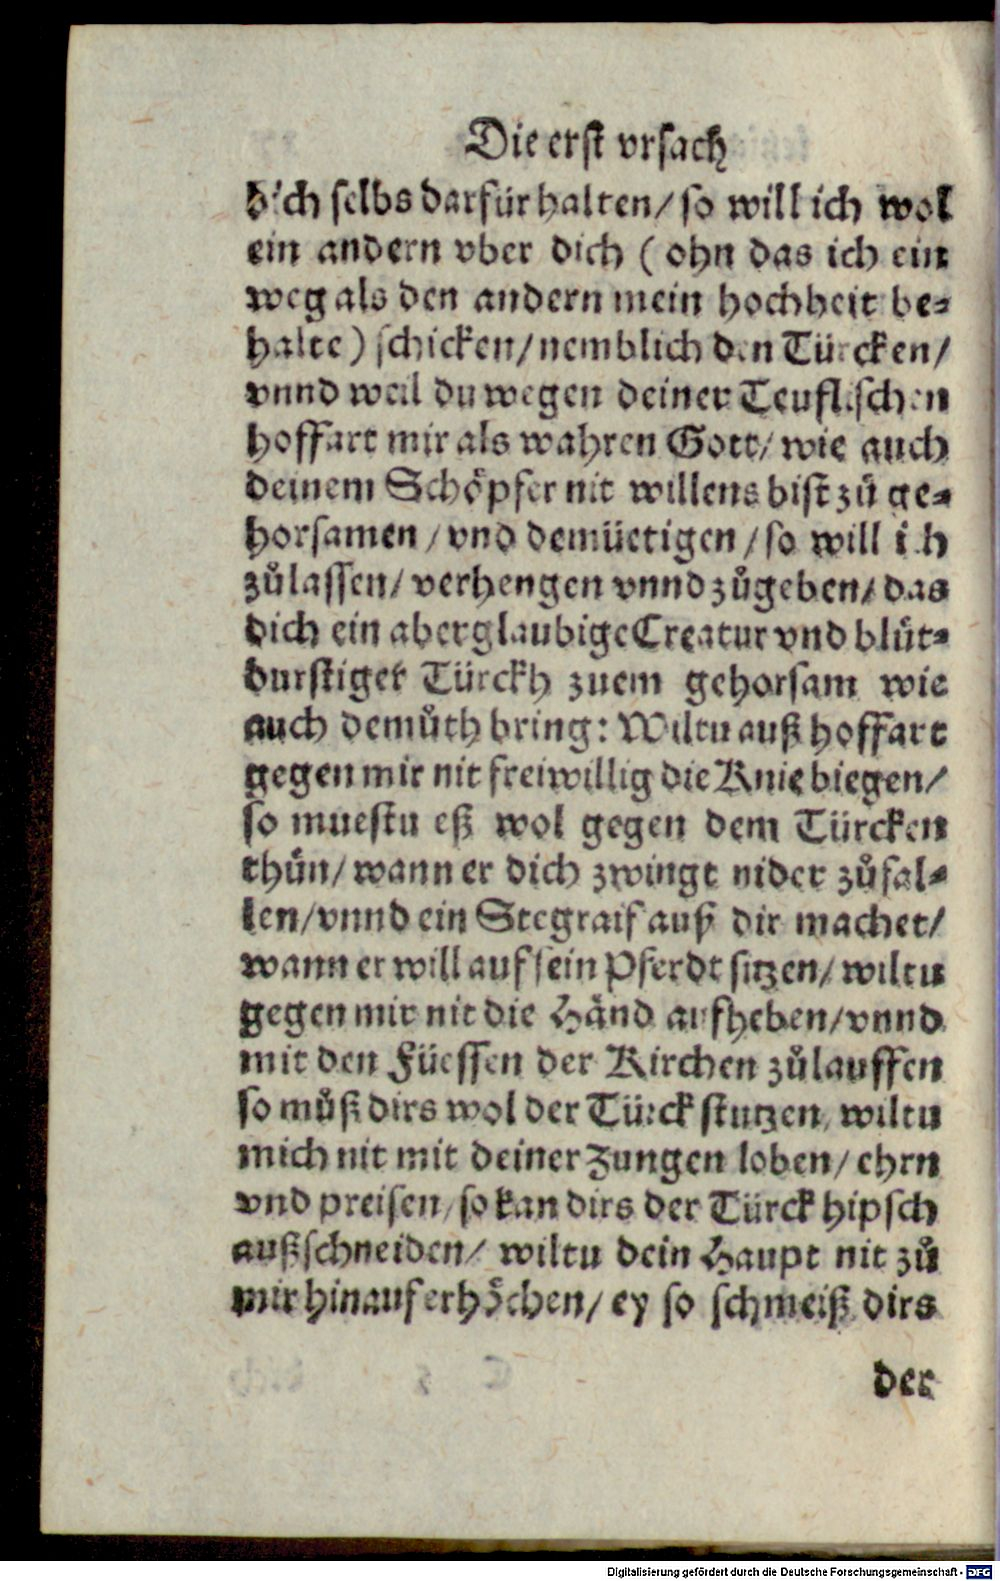 Die erst vrsach
dich selbs darfür halten/ so will ich wol
ein andern vber dich ( ohn das ich ein
weg als den andern mein hochheit be-
halte ) schicken/ nemblich den Türcken/
vnnd weil du wegen deiner Teuflischen
hoffart mir als wahren Gott/ wie auch
deinem Schöpfer nit willens bist zů ge-
horsamen / vnd demüetigen / so will ich
zůlassen/ verhengen vnnd zůgeben/ das
dich ein aberglaubige Creatur vnd blůt-
durstiger Türckh zuem gehorsam wie
auch demůth bring: Wiltu auß hoffart
gegen mir nit freiwillig die Knie biegen/
so muestu eß wol gegen dem Türcken
thůn/ wann er dich zwingt nider zůfal-
len/ vnnd ein Stegraif auß dir machet/
wann er will auf sein Pferdt sitzen/ wiltu
gegen mir nit die Händ aufheben/ vnnd
mit den Füessen der Kirchen zůlauffen
so můß dirs wol der Türck stutzen, wiltu
mich nit mit deiner Zungen loben/ ehrn
vnd preisen/ so kan dirs der Türck hipsch
außschneiden/ wiltu dein Haupt nit zů
mir hinauf erhöchen/ ey so schmeiß dirs
der
Digitalisierung gefördert durch die Deutsche Forschungsgemeinschaft - DFG